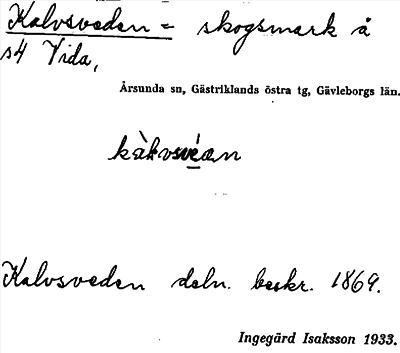 Kalvsveden = skogsmark å
s4 Vida,
Årsunda sn, Gästriklands östra tg, Gävleborgs län.
kàkvsvéan
Kalvsveden deln. beskr. 1869.
Ingegärd Isaksson 1933.